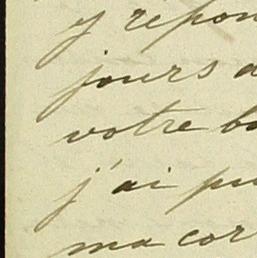 y répon
jours d
votre bo
j'ai pu
ma cor